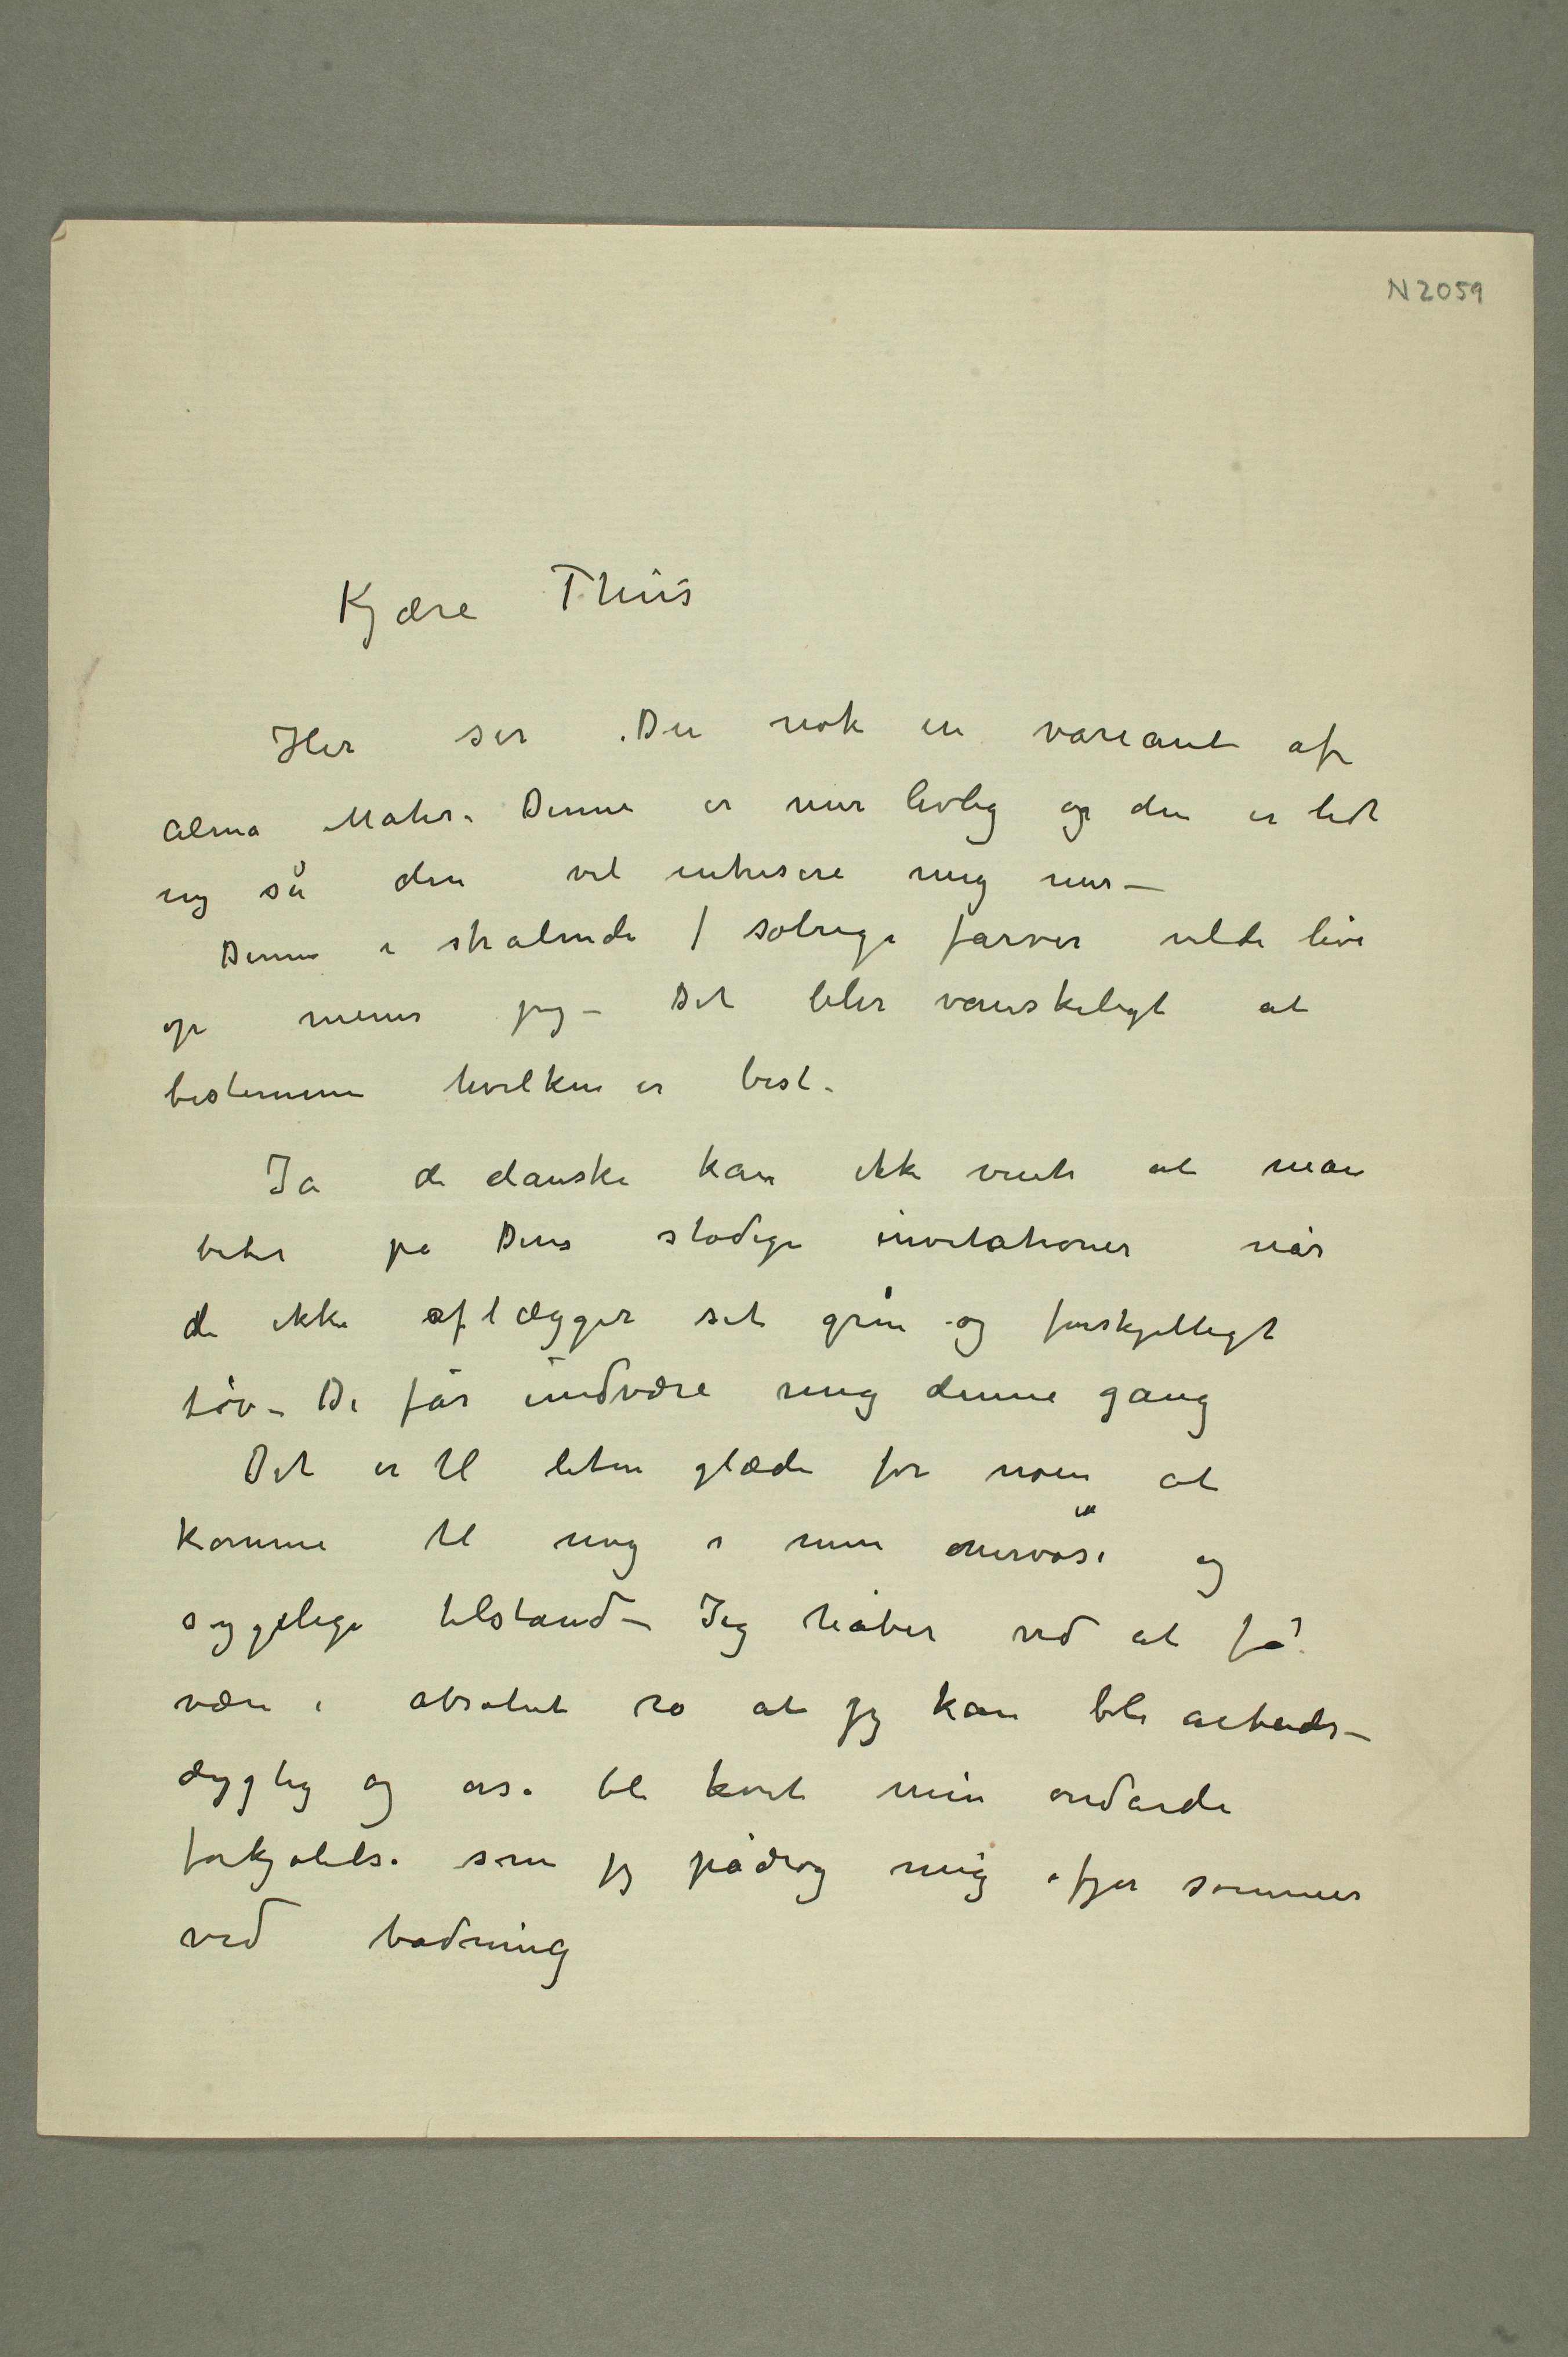 N 2059
Kjære Thiis
Her ser Du nok en variant af
Alma Mater. Denne er mer livlig og den er lidt
ny så den vil intresere mig mer –
Denne i strålende / solrige farver vilde live
op mener jeg – Det blir vanskeligt at
bestemme hvilken er best.
Ja de danske kan ikke vente at man
biter på Deres stadige invitationer når
de ikke aflægger sit grin og forskjelligt
tøv – De får undvære mig denne gang
Det er til liten glæde for noen at
komme til mig i min nervøse og
sygelige tilstand – Jeg håber ved at få
være i absolut ro at jeg kan bli arbeids-
dygtig og  bli kvit min ondarde
forkjølelse som jeg pådrog mig ifjor sommer
ved badning